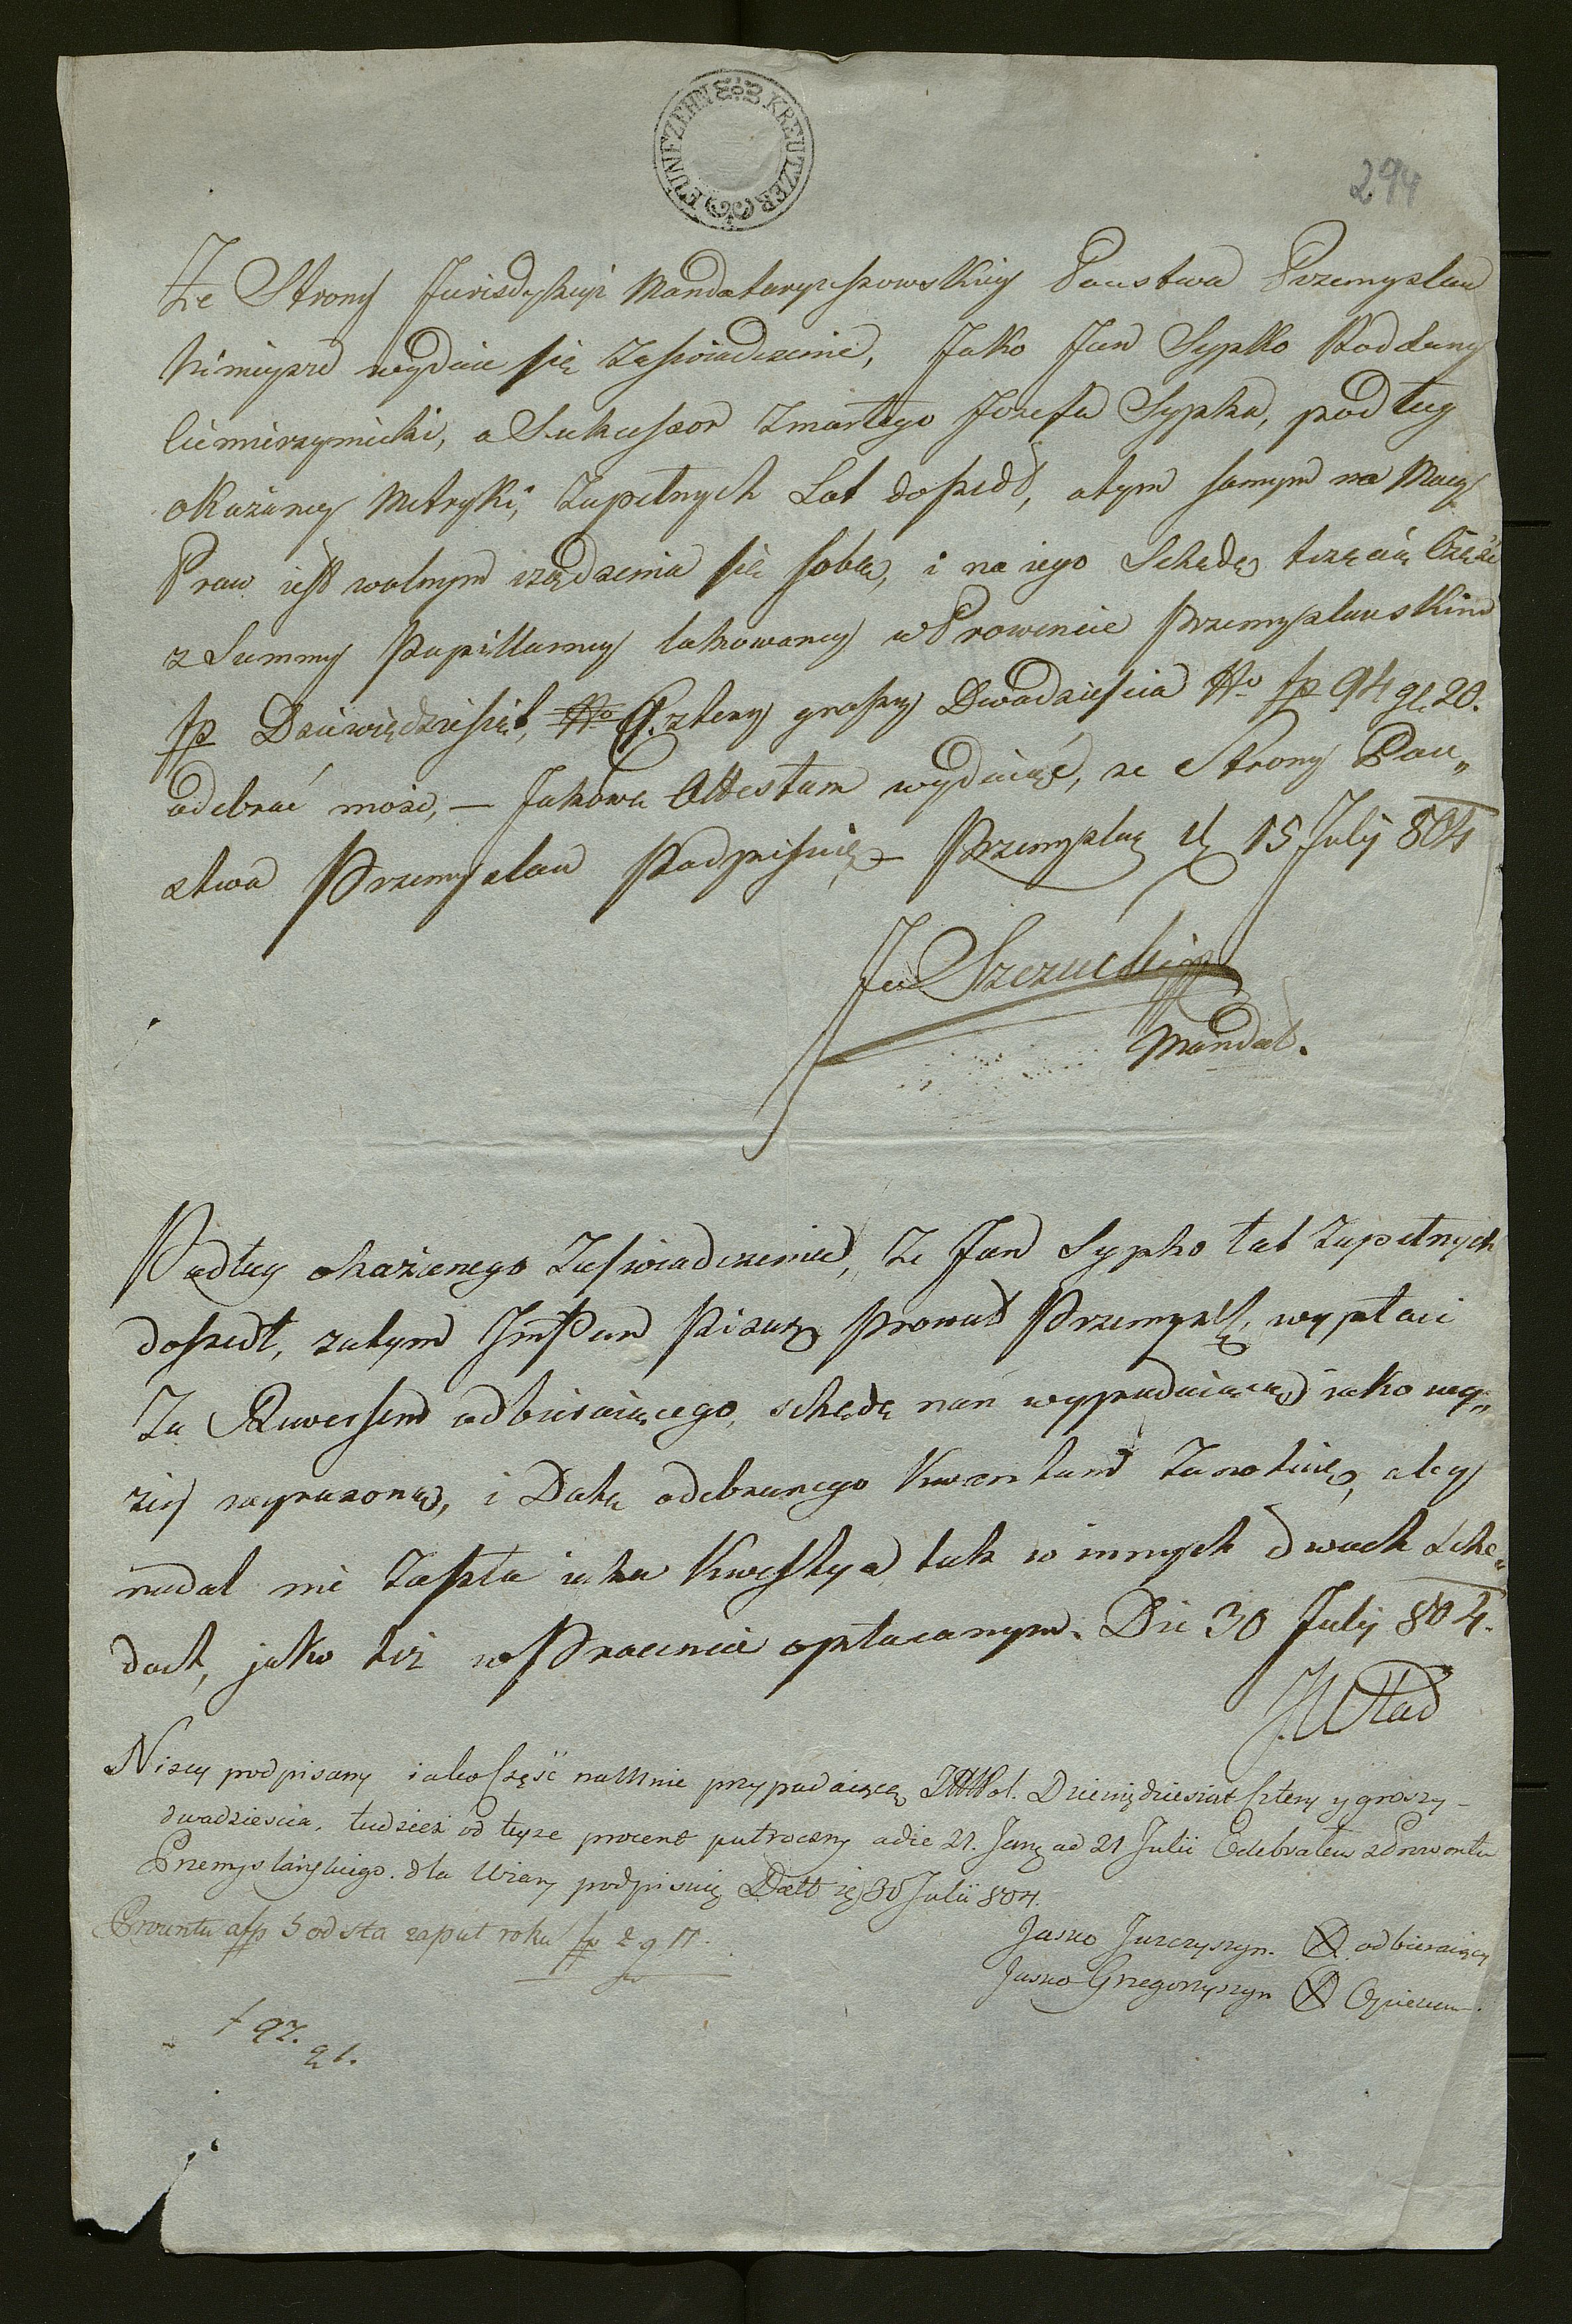 FÜNFZEHN KREUTZER
294
Ze Strony Jurisdykcyi Mandataryuszowskiey Panstwa Przemyslan
Ninieysze wydaie się Zaswiadczenie, Jako Jan Sypko Poddany
Ciemierzyniecki, a Sukcessor Zmarłego Jozefa Sypka, podług
okazaney Metryki, Zupełnych Lat doszedł, a tym samym na Mocy
Praw iest wolnym rządzenia się sobą, i na iego Schedę trzecią Część
z Summy Pupillarney lokowaney w Prowencie Przemyslanskim
fp Dziewiędziesiąt, Cztery groszy Dwadziescia No fp 94 gl. 20.
odebrać może, — Jakowe Attestum wydaiąc, ze Strony Pan„
stwa Przemyslan Podpisuię — Przemyslany 15 Julÿ 804
Ja Szczucki
Mandat.
Podług okazanego Zaswiadczenia, Ze Jan Sypko lat Zupełnych
doszedł, zatym ImPan Pisarz Prowent Przemysl. wypłaci
Za Rewersem odbieraiącego, schedę nań wypadaiącą iako wy„
żey wyrazoną, i Datę odebranego Kwantum Zanotuie, aby
nadal nie Zaszła iaka Kwestya tak w innych dwoch Sche„
dach, jako też w Procencie opłacanym. Die 30 Julÿ 804.
Nizey podpisany iako Część na Mnie przypadaiącą Pol. Dziewiędziesiąt Cztery y groszy
dwadziescia, tudziesz od teyze procent putroczny a die 21. Jany ad 21 Julii Odebrałem z Prowentu
Przemyslańskiego. dla Wiary podpisuię Datt 30 Julii 804.
Jasko Jurczyszyn X odbieraiący
Prowentu a fp 5 od sta za puł roku fp 2 g 11.
Jasko Grzegorzyszyn X Opiekun.
f 97.
g 1.